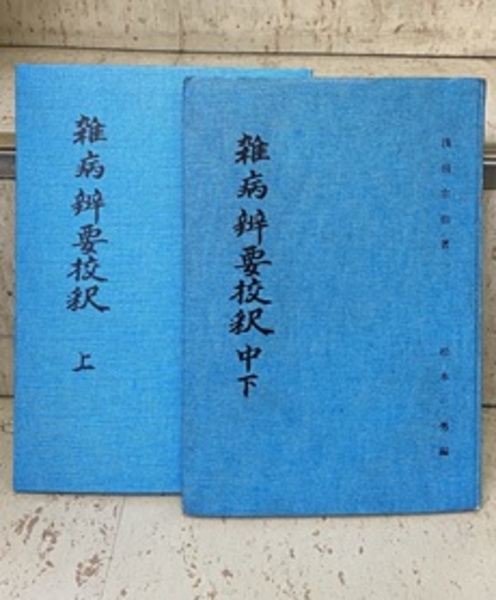 雑病辨要挍釈
上
雑病辨要挍釈
中下
浅田宗伯著
松本一男編